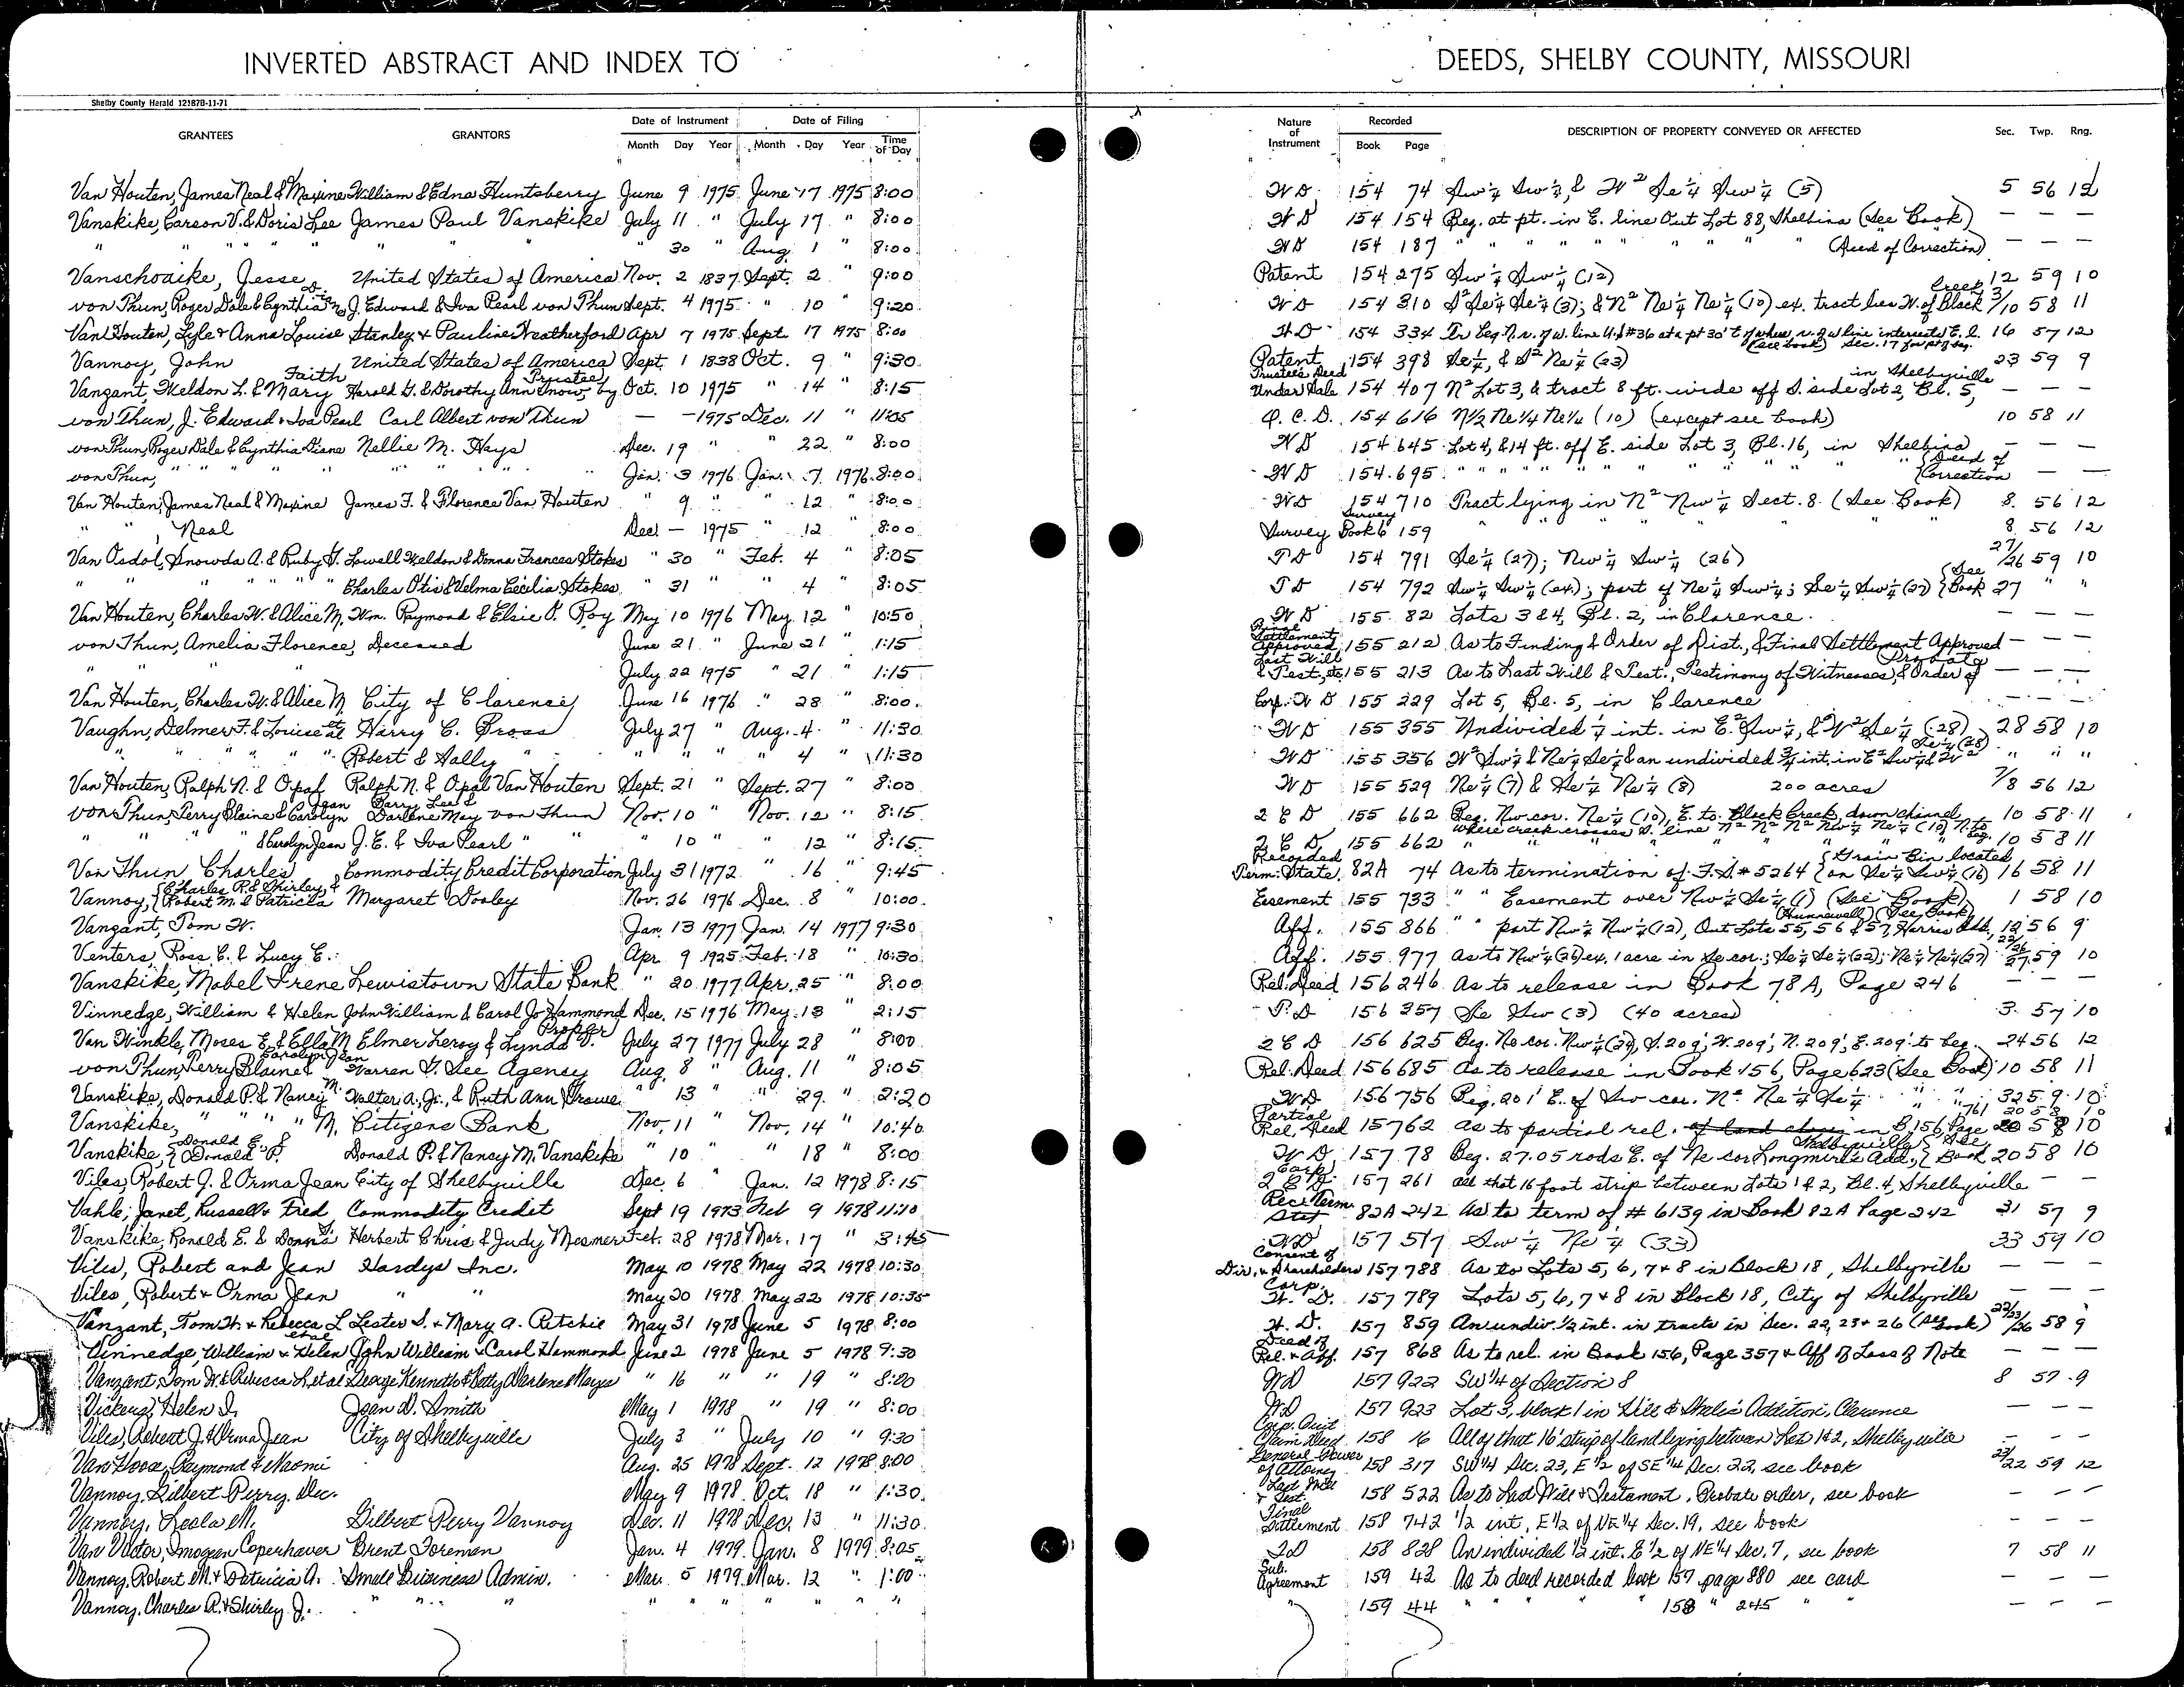 INVERTED ABSTRACT AND INDEX TO
DEEDS, SHELBY COUNTY, MISSOURI
Shelby County Herald 12187B-11-71
GRANTEES GRANTORS Date of Instrument Month Day Year Date of Filing Month Day Year Time of Day
Nature of Instrument Recorded Book Page DESCRIPTION OF PROPERTY CONVEYED OR AFFECTED Sec. Twp. Rng.
Van Houten, James Neal & Maxine William & Edna Huntsberry June 9 1975 June 17 1975 8:00 WD 154 74 Sw 1/4 Sw 1/4, & W² Se 1/4 Sw 1/4 (5) 5 56 12
Vanskike, Carson V. & Doris Lee James Paul Vanskike July 11 " July 17 " 8:00 WD 154 154 Beg. at pt. in E. line Out Lot 88, Shelbina (See Book) — — —
" " " " " " " " 30 " Aug. 1 " 8:00 WD 154 187 " " " " " " " " " (Deed of Correction) — — —
Vanschoaike, Jesse D. United States of America Nov. 2 1837 Sept. 2 " 9:00 Patent 154 275 Sw 1/4 Sw 1/4 (12) 12 59 10
von Thun, Roger Dale & Cynthia J. Edward & Iva Pearl von Thun Sept. 4 1975 " 10 " 9:20 WD 154 310 S² Se 1/4 Se 1/4 (3); & N² Ne 1/4 Ne 1/4 (10) ex. tract lies W. of Black Creek 3/10 58 11
Van Houten, Lyle & Anna Louise Stanley & Pauline Weatherford Apr 7 1975 Sept 17 1975 8:00 W D 154 334 Tr Beg. N. r. of w. line U.S. #36 at a pt 30' E of where r. of w line intersects E. l. (see book) Sec. 17 for pt of beg. 16 57 12
Vannoy, John United States of America Sept. 1 1838 Oct. 9 " 9:30 Patent 154 398 Se 1/4, & S² Ne 1/4 (23) 23 59 9
Vanzant, Weldon L. & Mary Faith Harold G. & Dorothy Ann Snow, by Trustee Oct. 10 1975 " 14 " 8:15 Trustee's Deed Under Sale 154 407 N² Lot 3, & tract 8 ft. wide off S. side Lot 2, Bl. 5, in Shelbyville — — —
von Thun, J. Edward & Iva Pearl Carl Albert von Thun — — 1975 Dec. 11 " 11:05 Q. C. D. 154 616 N/2 Ne 1/4 Ne 1/4 (10) (except see book) 10 58 11
von Thun, Roger Dale & Cynthia Diane Nellie M. Hays Dec. 19 " " 22 " 8:00 WD 154 645 Lot 4, & 14 ft. off E. side Lot 3, Bl. 16, in Shelbina — — —
von Thun, " " " " " " " Jan. 3 1976 Jan. 7 1976 8:00 WD 154 695 " " " " " " " " " " (Deed of Correction — —
Van Houten, James Neal & Maxine James F. & Florence Van Houten " 9 " " 12 " 8:00 WD 154 710 Tract lying in N² Nw 1/4 Sect. 8. (See Book) 8 56 12
" " , Neal Dec. — 1975 " 12 " 8:00 Survey Survey Book 6 159 " " " " " 8 56 12
Van Osdol, Snowda A. & Ruby G. Lowell Weldon & Donna Frances Stokes " 30 " Feb. 4 " 8:05 TD 154 791 Se 1/4 (27); Nw 1/4 Sw 1/4 (26) 27/26 59 10
" " " " " " Charles Otis & Velma Cecilia Stokes " 31 " " 4 " 8:05 TD 154 792 Sw 1/4 Sw 1/4 (ex.); part of Ne 1/4 Sw 1/4; Se 1/4 Sw 1/4 (27) (See Book 27 " "
Van Houten, Charles W. & Alice M. Wm. Raymond & Elsie O. Roy May 10 1976 May 12 " 10:50 WD 155 82 Lots 3 & 4, Bl. 2, in Clarence. — — —
von Thun, Amelia Florence, Deceased June 21 " June 21 " 1:15 Final Settlement Approved 155 212 As to Finding & Order of Dist., & Final Settlement Approved — — —
" " July 22 1975 " 21 " 1:15 Last Will & Test., etc. 155 213 As to Last Will & Test., Testimony of Witnesses, & Order of Probate — — —
Van Houten, Charles W. & Alice M. City of Clarence June 16 1976 " 28 " 8:00 Corp. W D 155 229 Lot 5, Bl. 5, in Clarence — — —
Vaughn, Delmer F. & Louise et al Harry C. Gross July 27 " Aug. 4 " 11:30 WD 155 355 Undivided 1/4 int. in E.² Sw 1/4, & W² Se 1/4 (28) 28 58 10
" " " " " Robert & Sally " " " " 4 " 11:30 WD 155 356 W² Sw 1/4 & Ne 1/4 Se 1/4 & an undivided 3/4 int. in E² Sw 1/4 & W² Se 1/4 (28) " " "
Van Houten, Ralph N. & Opal Ralph N. & Opal Van Houten Sept. 21 " Sept. 27 " 8:00 WD 155 529 Ne 1/4 (7) & Se 1/4 Ne 1/4 (8) 200 acres 7/8 56 12
von Thun, Terry Blaine & Carolyn Jean Barry Lee & Darlene May von Thun Nov. 10 " Nov. 12 " 8:15 2 C D 155 662 Beg. Nw cor. Ne 1/4 (10), E. to Black Creek, down channel 10 58 11
" " " & Carolyn Jean J. E. & Iva Pearl " " " 10 " " 12 " 8:15 2 C D 155 662 where creek crosses S. line N² N² N² Nw 1/4 Ne 1/4 (10) N. to beg. 10 58 11
Von Thun Charles Commodity Credit Corporation July 31 1972 " 16 " 9:45 Recorded Term. State. 82A 74 As to termination of F.S. # 5264 (Grain Bin located on Se 1/4 Sw 1/4 (16) 16 58 11
Vannoy, {Charles R. & Shirley & Robert M. & Patricia Margaret Dooley Nov. 26 1976 Dec. 8 " 10:00 Easement 155 733 " " Easement over Nw 1/4 Se 1/4 (1) (See Book) 1 58 10
Vanzant, Tom W. Jan. 13 1977 Jan. 14 1977 9:30 Aff. 155 866 " " part Nw 1/4 Nw 1/4 (12), Out Lots 55, 56 & 57, Harris Add. (Hunnewell) (See Book) 12 56 9
Venters, Ross C. & Lucy E. Apr. 9 1925 Feb. 18 " 10:30 Aff. 155 977 as to Nw 1/4 (26) ex. 1 acre in Se cor.; Se 1/4 Se 1/4 (22); Ne 1/4 Ne 1/4 (27) 22/26 27 59 10
Vanskike, Mabel Irene Lewistown State Bank " 20 1977 Apr. 25 " 8:00 Rel. Deed 156 246 As to release in Book 78A, Page 246 — —
Vinnedge, William & Helen John William & Carol Jo Hammond Dec. 15 1976 May 13 " 2:15 T. D 156 357 Se Sw (3) (40 acres) 3 57 10
Van Winkle, Moses E. & Ella M. Elmer Leroy & Lynda V. Propfer July 27 1977 July 28 " 8:00 2 C D 156 625 Beg. Ne cor. Nw 1/4 (24), S. 209', W. 209', N. 209', E. 209' to beg. 24 56 12
von Thun, Terry Blaine & Carolyn Jean Warren G. See Agency Aug. 8 " Aug. 11 " 8:05 Rel. Deed 156 685 As to release in Book 156, Page 623 (See Book) 10 58 11
Vanskike, Donald P. & Nancy M. Walter A., Jr., & Ruth Ann Crowe " 13 " " 29 " 2:20 WD 156 756 Beg. 201' E. of Sw cor. N² Ne 1/4 Se 1/4 32 59 10
Vanskike, " " " " M. Citizens Bank Nov. 11 " Nov. 14 " 10:40 Partial Rel. Deed 15 762 as to partial rel. of land in B. 156, Page 761 20 58 10
Vanskike, {Donald E. & Donald P. Donald P. & Nancy M. Vanskike " 10 " " 18 " 8:00 W D 157 78 Beg. 27.05 rods E. of Ne cor Longmire's Add., Shelbyville (See Book 20 58 10
Viles, Robert J. & Orma Jean City of Shelbyville Dec. 6 " Jan. 12 1978 8:15 Corp. 2 C D 157 261 all that 16 foot strip between Lots 1 & 2, Bl. 4, Shelbyville — —
Vahle, Janet, Russell & Fred Commodity Credit Sept 19 1973 Feb 9 1978 11:10 Rec. Term Stat 82A 242 As to term of # 6139 in Book 82A Page 242 31 57 9
Vanskike, Ronald E. & Donna Herbert Chris & Judy Mesmer Feb. 28 1978 Mar. 17 " 3:45 WD 157 517 Sw 1/4 Ne 1/4 (33) 33 59 10
Viles, Robert and Jean Hardys Inc. May 10 1978 May 22 1978 10:30 Consent of Dir. & Shareholders 157 788 As to Lots 5, 6, 7 & 8 in Block 18, Shelbyville — — —
Viles, Robert & Orma Jean " " May 20 1978 May 22 1978 10:35 Corp. W. D. 157 789 Lots 5, 6, 7 & 8 in Block 18, City of Shelbyville — — —
Vanzant, Tom W. & Rebecca L et al Lester S. & Mary A. Ritchie May 31 1978 June 5 1978 8:00 W. D. 157 859 An undiv. 1/2 int. in tracts in Sec. 22, 23 & 26 (See Book) 22/23/26 58 9
Vinnedge, William & Helen John William & Carol Hammond June 2 1978 June 5 1978 9:30 Deed of Rel. & Aff. 157 868 As to rel. in Book 156, Page 357 & Aff of Loss of Note — — —
Vanzant, Tom W. & Rebecca L et al George Kenneth & Betty Darlene Mayes " 16 " " 19 " 8:00 WD 157 922 SW 1/4 of Section 8 8 57 9
Vickers, Helen I. Joan D. Smith May 1 1978 " 19 " 8:00 WD 157 923 Lot 3, block 1 in Addition, Clarence — — —
Viles, Robert J. & Orma Jean City of Shelbyville July 3 " July 10 " 9:30 Corp. Quit Claim Deed 158 16 All of that 16' strip of land lying between Lots 1 & 2, Shelbyville — — —
Van Hoose, Raymond & Naomi Aug. 25 1978 Sept. 12 1978 8:00 General Power of Attorney 158 317 SW 1/4 Sec. 23, E 1/2 of SE 1/4 Sec. 22, see book 23/22 59 12
Vannoy, Gilbert Perry, Dec. May 9 1978 Oct. 18 " 1:30 Last Will & Test. 158 522 As to Last Will & Testament, Probate order, see book — — —
Vannoy, Leola M. Gilbert Perry Vannoy Dec. 11 1978 Dec. 13 " 11:30 Final Settlement 158 742 1/2 int, E 1/2 of NE 1/4 Sec. 19, see book
Van Vactor, Imogean Coperhaver Brent Foreman Jan. 4 1979 Jan. 8 1979 8:05 TD 158 828 An individed 1/2 int. E 1/2 of NE 1/4 Sec. 7, see book 7 58 11
Vannoy, Robert M. & Patricia A. Small Business Admin. Mar. 5 1979 Mar. 12 " 1:00 Sub. Agreement 159 42 As to deed recorded book 157 page 880 see card — — —
Vannoy, Charles R. & Shirley J. " " " " " " " " " " " 159 44 " " " " 158 " 245 " " — — —